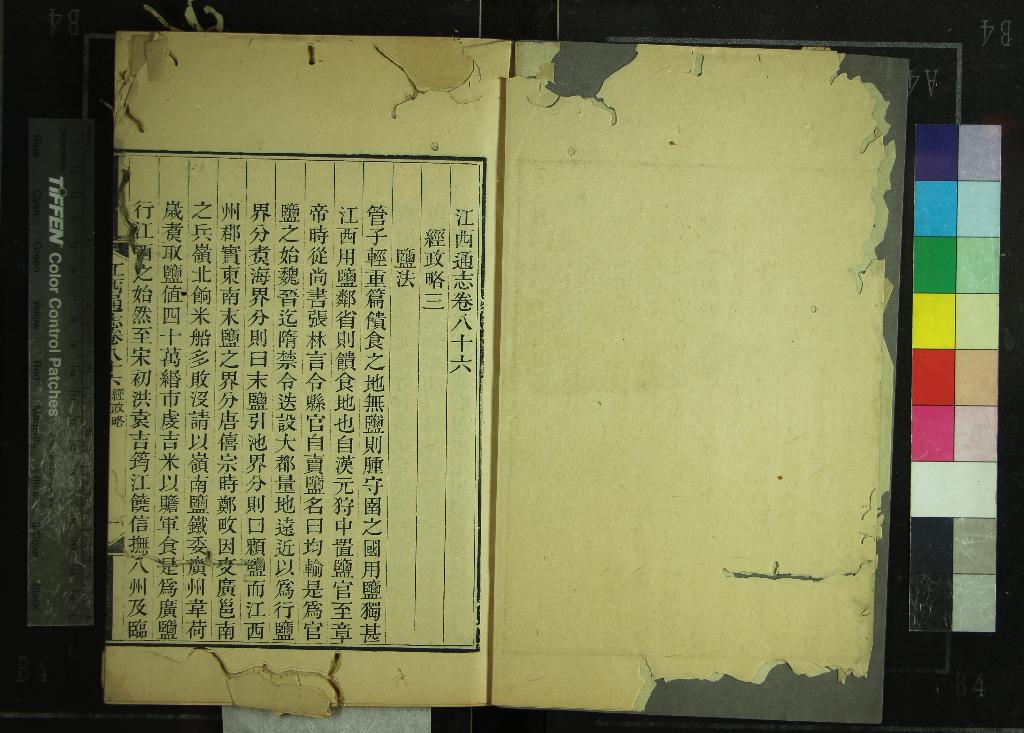 江西通志卷八十六
經政略三
鹽法
管子輕重篇饋食之地無鹽則腫守圉之國用鹽獨甚
江西用鹽鄰省則饋食地也自漢元狩中置鹽官至章
帝時從尚書張林言令縣官自賣鹽名曰均輸是爲官
鹽之始魏晉迄隋禁令迭設大都量地遠近以爲行鹽
界分煑海界分則曰末鹽引池界分則曰顆鹽而江西
州郡實東南末鹽之界分唐僖宗時鄭畋因交廣邕南
之兵嶺北餉米船多敗沒請以嶺南鹽鐵委廣州韋荷
歲煑取鹽值四十萬緡市虔吉米以贍軍食是爲廣鹽
行江西之始然至宋初洪袁吉筠江饒信撫八州及臨
江西通志卷八十六 經政略
B4
B4
A4
B4
B4
TIFFEN Color Control Patches
Blue Cyan Green Yellow Red Magenta White 3/Color Black